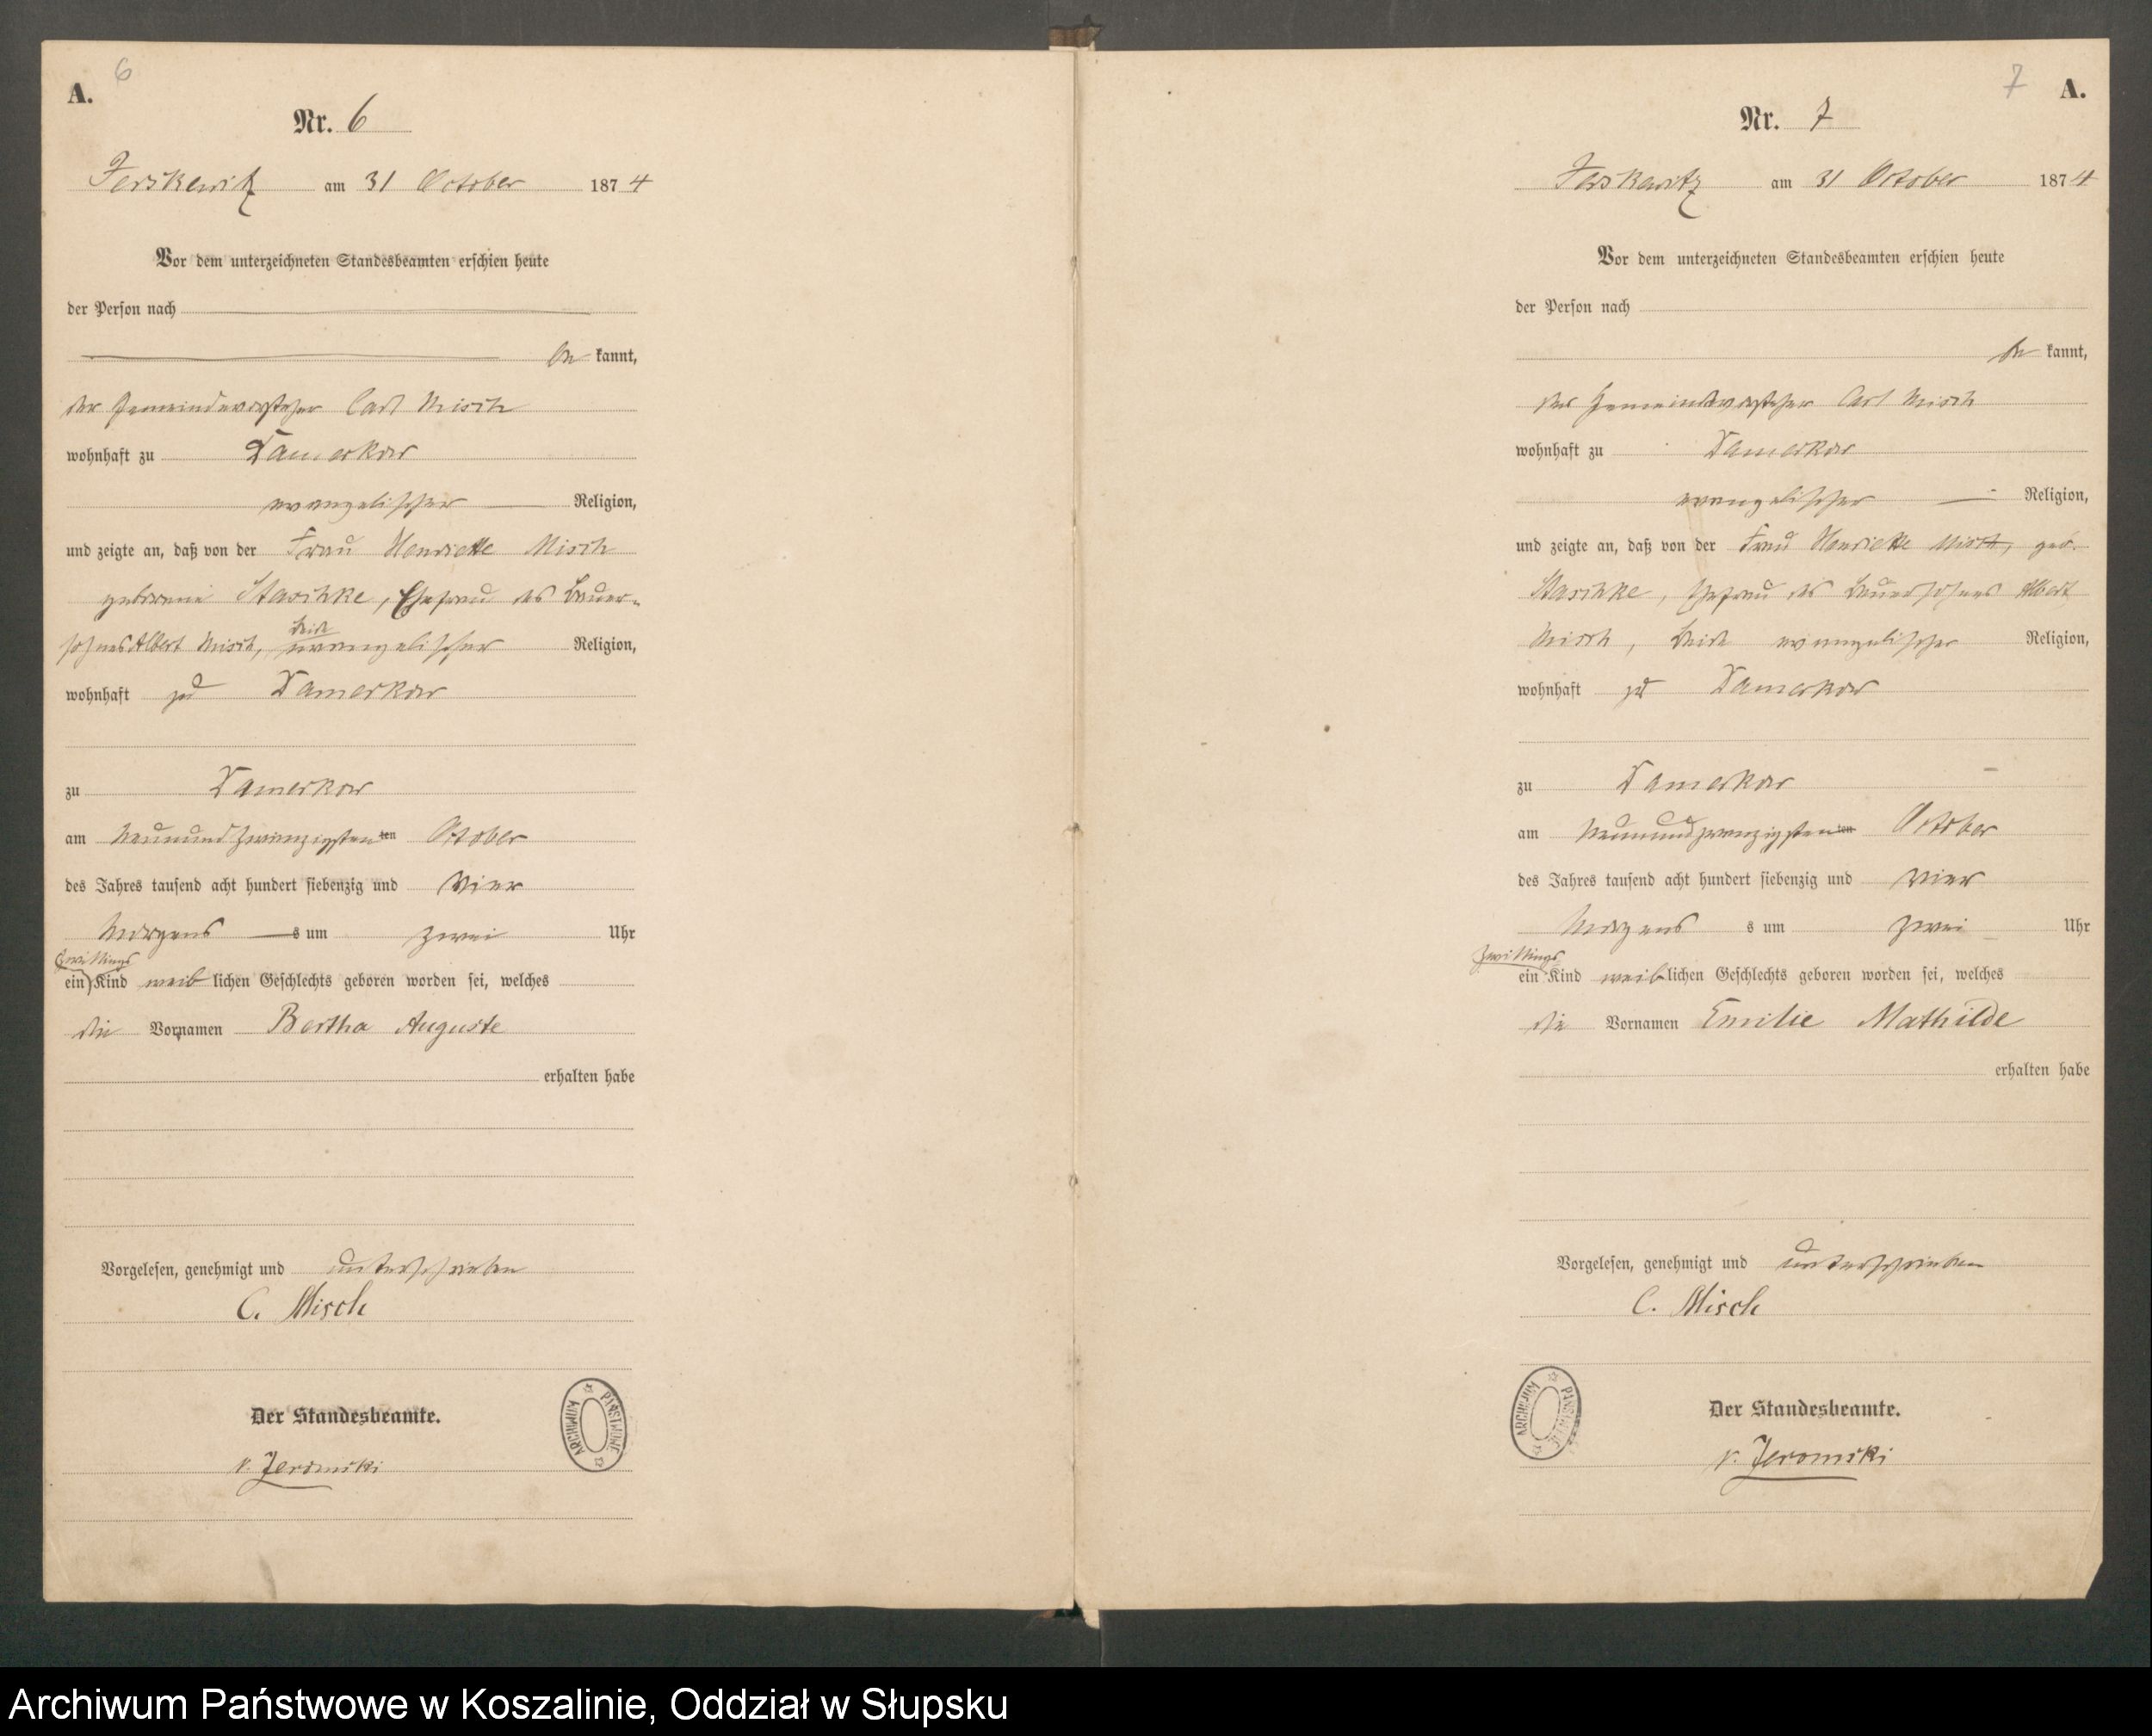 6
A.
Nr. 6
Jerskewitz am 31 October 1874
Vor dem unterzeichneten Standesbeamten erschien heute
der Person nach
be kannt,
der Gemeindevorsteher Carl Misch
wohnhaft zu Damerkow
evangelischer Religion,
und zeigte an, daß von der Frau Henriette Misch
geborene Staschke, Ehefrau des Bauer-
beide
sohnes Albert Misch, evangelischer Religion,
wohnhaft zu Damerkow
zu Damerkow
am Neunundzwanzigsten ten October
des Jahres tausend acht hundert siebenzig und vier
Morgens s um zwei Uhr
Zwillings
ein Kind weib lichen Geschlechts geboren worden sei, welches
die Vornamen Bertha Auguste
erhalten habe
Vorgelesen, genehmigt und unterschrieben
C. Misch
Der Standesbeamte.
v. Jeromski
ARCHIWUM PAŃSTWOWE
7 A.
Nr. 7
Jerskewitz am 31 October 1874
Vor dem unterzeichneten Standesbeamten erschien heute
der Person nach
be kannt,
der Gemeindevorsteher Carl Misch
wohnhaft zu Damerkow
evangelischer Religion,
und zeigte an, daß von der Frau Henriette Misch, geb.
Staschke, Ehefrau des Bauersohnes Albert
Misch, beide evangelischer Religion,
wohnhaft zu Damerkow
zu Damerkow
am Neunundzwanzigsten ten October
des Jahres tausend acht hundert siebenzig und vier
Morgens s um zwei Uhr
Zwillings
ein Kind weiblichen Geschlechts geboren worden sei, welches
die Vornamen Emilie Mathilde
erhalten habe
Vorgelesen, genehmigt und unterschrieben
C. Misch
ARCHIWUM PAŃSTWOWE
Der Standesbeamte.
v. Jeromski
Archiwum Państwowe w Koszalinie, Oddział w Słupsku